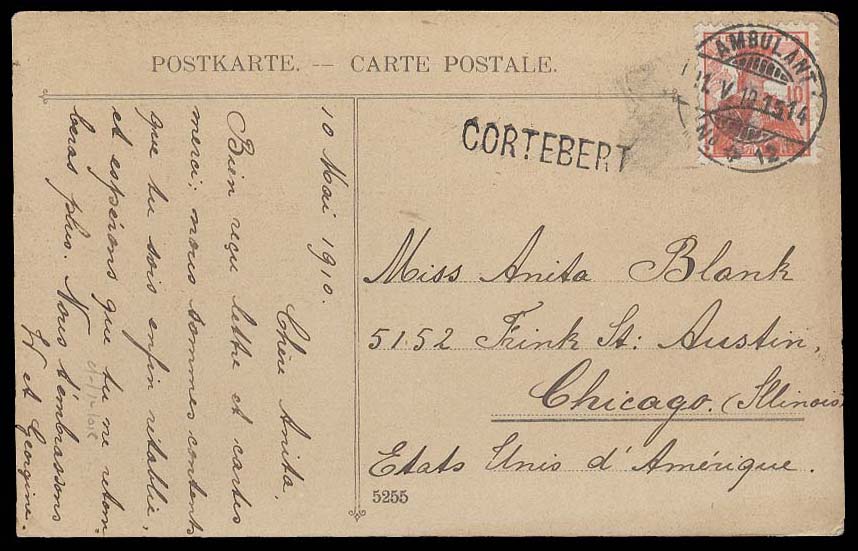 POSTKARTE. — CARTE POSTALE.
AMBULANT
11. V. 10. 1514
No 4 12
10
CORTEBERT
10 Mai 1910.
Chère Anita,
Bien reçu lettre et cartes
merci; nous sommes contents
que tu sois enfin rétablie,
et espérons que tu ne retom-
beras plus. Nous t'embrassons
et Georgine.
Miss Anita Blank
5152 Frink St: Austin,
Chicago. (Illinois)
Etats Unis d'Amérique.
5255